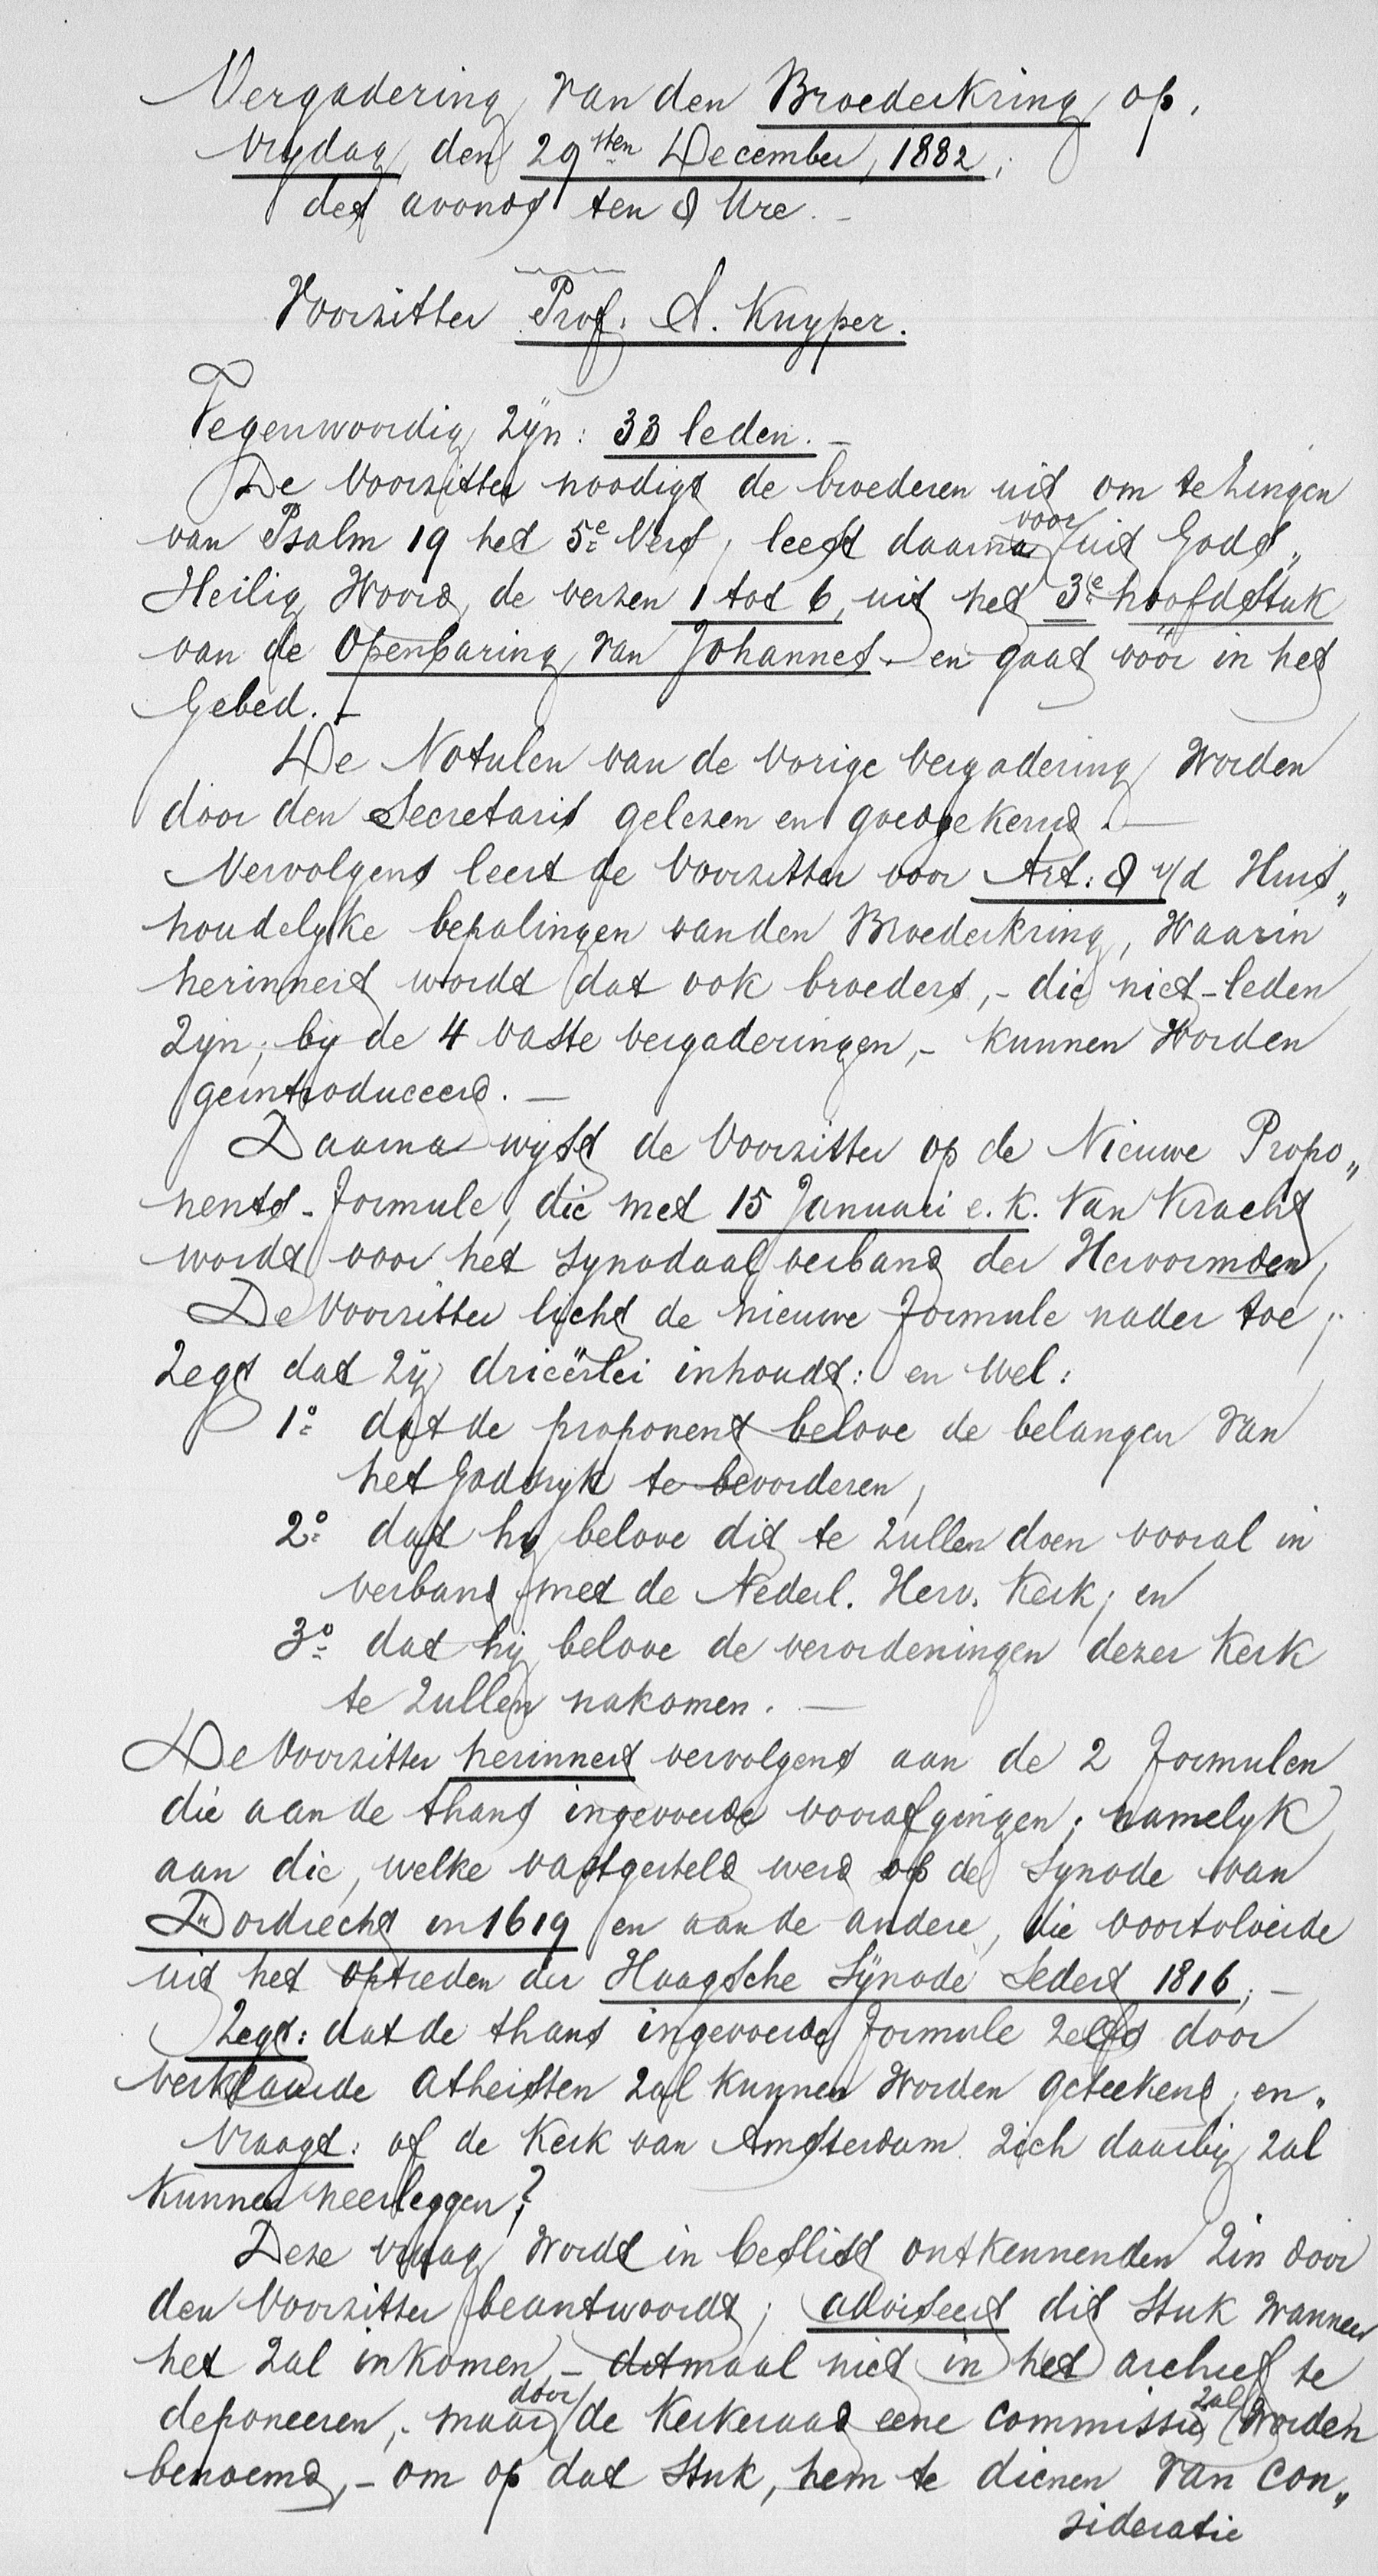 Vergadering van den Broederkring op.
Vrydag den 29sten December, 1882,
des avonds ten 8 Ure. -
Voorzitter Prof. A. Kuyper.
Tegenwoordig zyn: 33 leden. -
De Voorzitter noodigt de broederen uit om te zingen
van Psalm 19 het 5e Vers, leest daarna voor uit Gods„
Heilig Woord, de verzen 1 tot 6, uit het 3e hoofdstuk
van de Openbaring van Johannes. en gaat vóór in het
Gebed. -
De Notulen van de vorige vergadering worden
door den Secretaris gelezen en goedgekeurd. -
Vervolgens leest de Voorzitter voor Art: 8 v/d Huis„
houdelyke bepalingen van den Broederkring, Waarin
herinnert wordt dat ook broeders, - die niet-leden
zyn, by de 4 vaste vergaderingen, - kunnen worden
geintroduceerd. -
Daarna wyst de Voorzitter op de Nieuwe Propo„
nents-formule, die met 15 Januari e.k. van Kracht
wordt voor het synodaal verband der Hervormden,
De Voorzitter licht de nieuwe formule nader toe;
zegt dat zy drieërlei inhoudt: en wel:
1o dat de proponent belove de belangen van
het Godsryk te bevorderen,
2o dat hy belove dit te zullen doen vooral in
verband met de Nederl. Herv. Kerk; en
3o dat hy belove de verordeningen dezer Kerk
te zullen nakomen. -
De Voorzitter herinnert vervolgens aan de 2 formulen
die aan de thans ingevoerde voorafgingen; namelyk
aan die, welke vastgesteld werd op de Synode van
Dordrecht in 1619 en aan de andere, die voortvloeide
uit het optreden der Haagsche Synode sedert 1816; -
Zegt: dat de thans ingevoerde formule zelfs door
verklaarde Atheisten zal kunnen worden geteekend; en.
Vraagt: of de Kerk van Amsterdam zich daarby zal
kunnen neerleggen?
Deze vraag wordt in beslist ontkennenden zin door
den Voorzitter beantwoordt; adviseert dit stuk wanneer
het zal inkomen, - ditmaal niet in het archief te
deponeeren, maar door de Kerkeraad eene commissie zal worden
benoemd, - om op dat stuk, hem te dienen van con„
sideratie